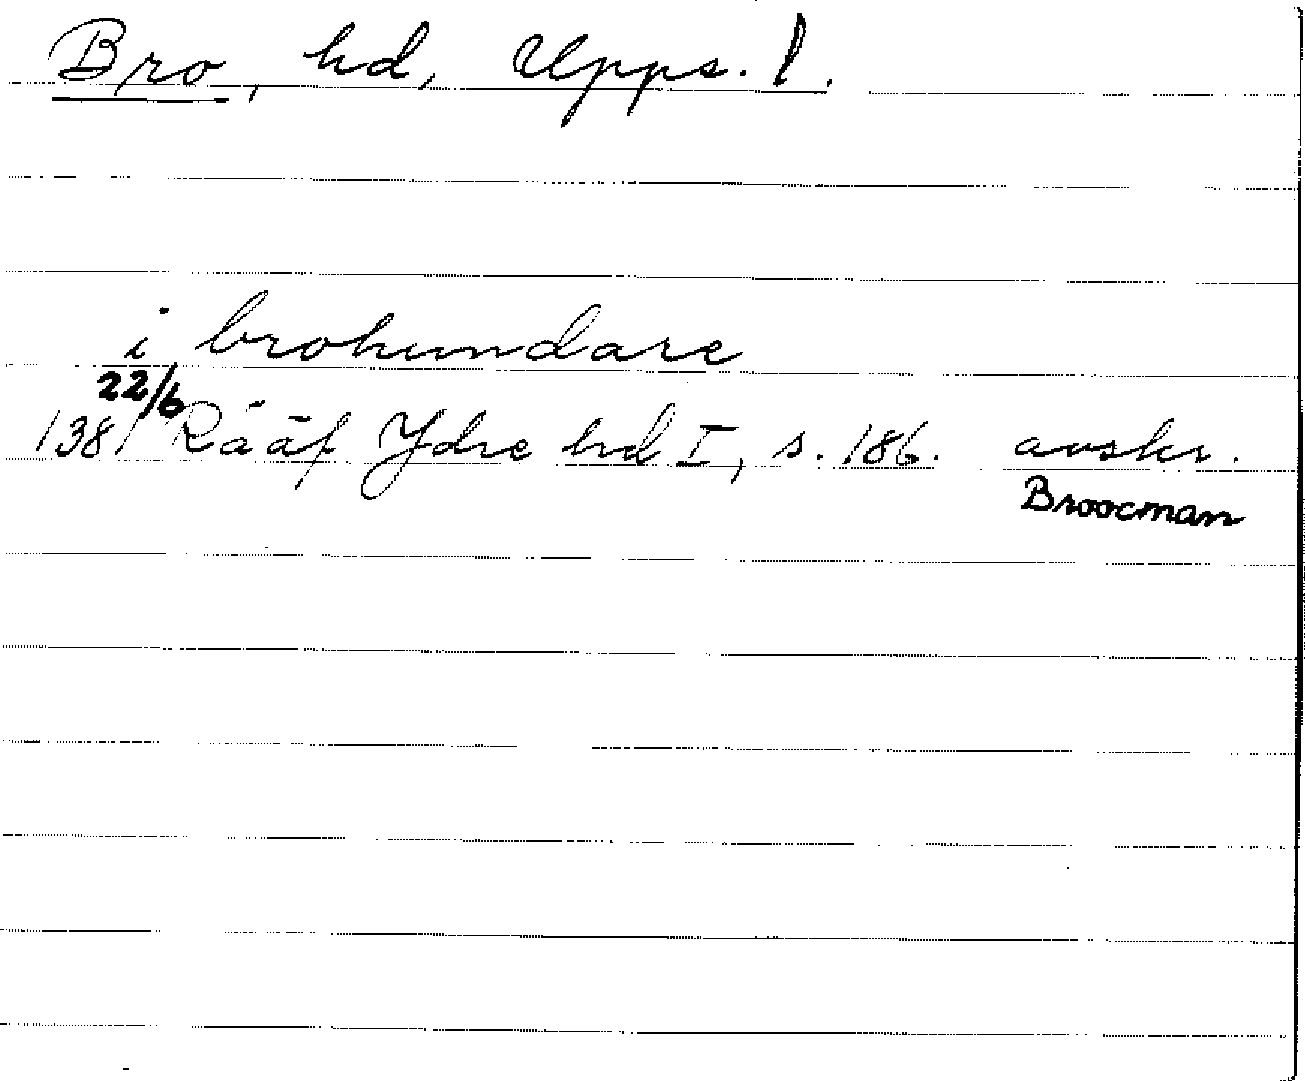 Bro, hd, Upps. l.
i brohundare
22/6
1381 Rääf Ydre hd I, s. 186. avskr.
Broocman